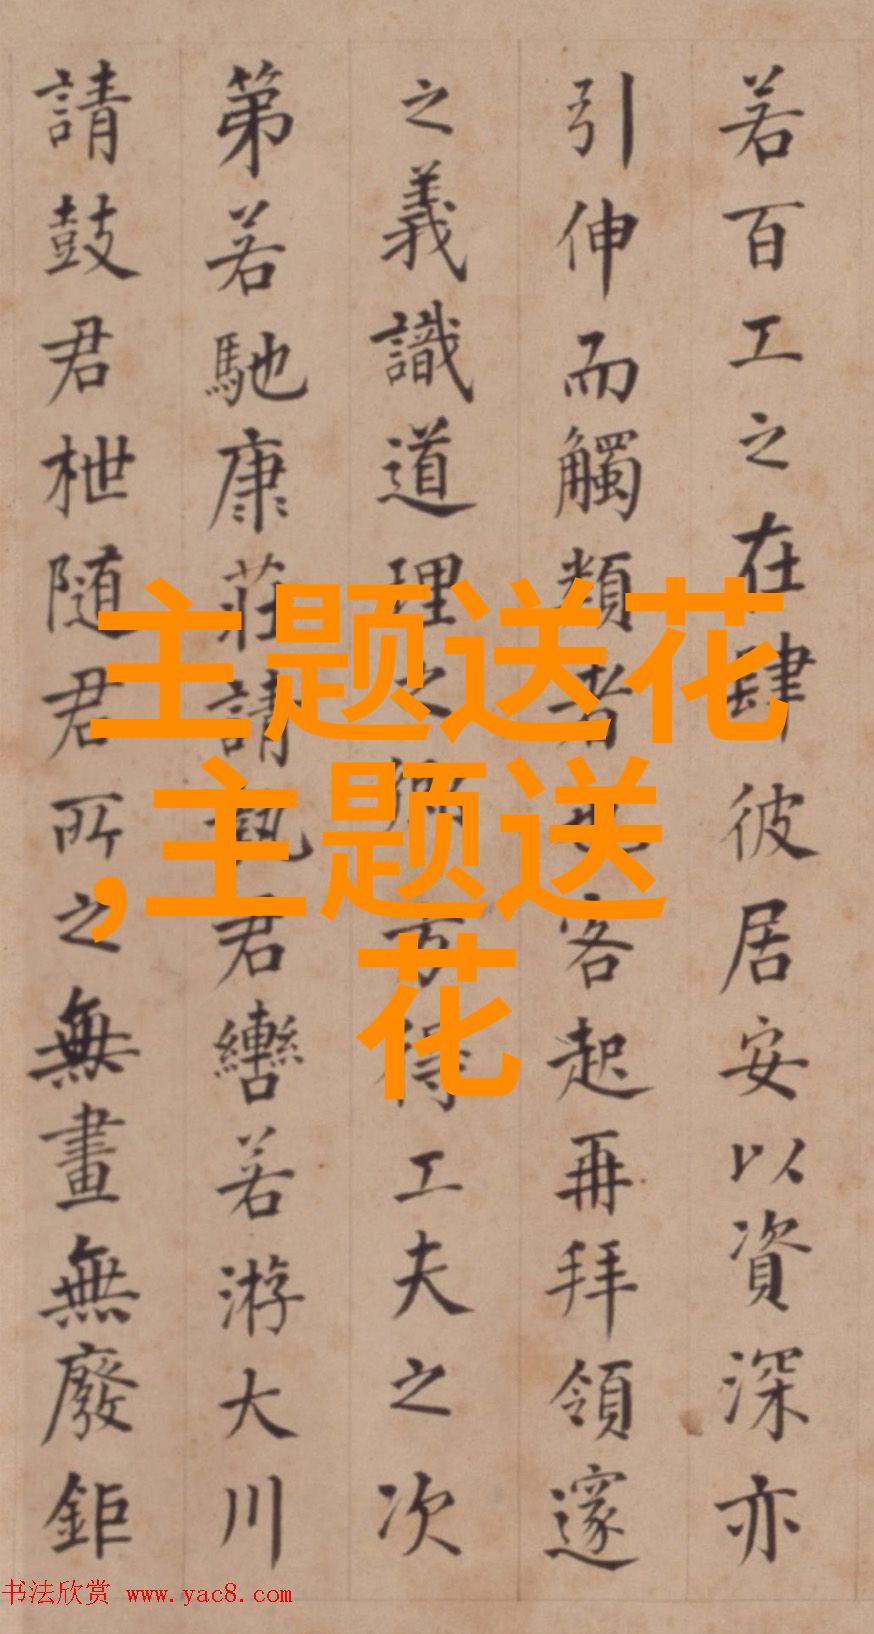 若百工之在肆彼居安以資深亦
引伸而觸類者也客起再拜領邃
之義識道理之鄉方得工夫之次
第若馳康莊請執君轡若游大川
請鼓君枻随君所之無畫無廢鉅
主题送花
,主题送
花
书法欣赏 www.yac8.com